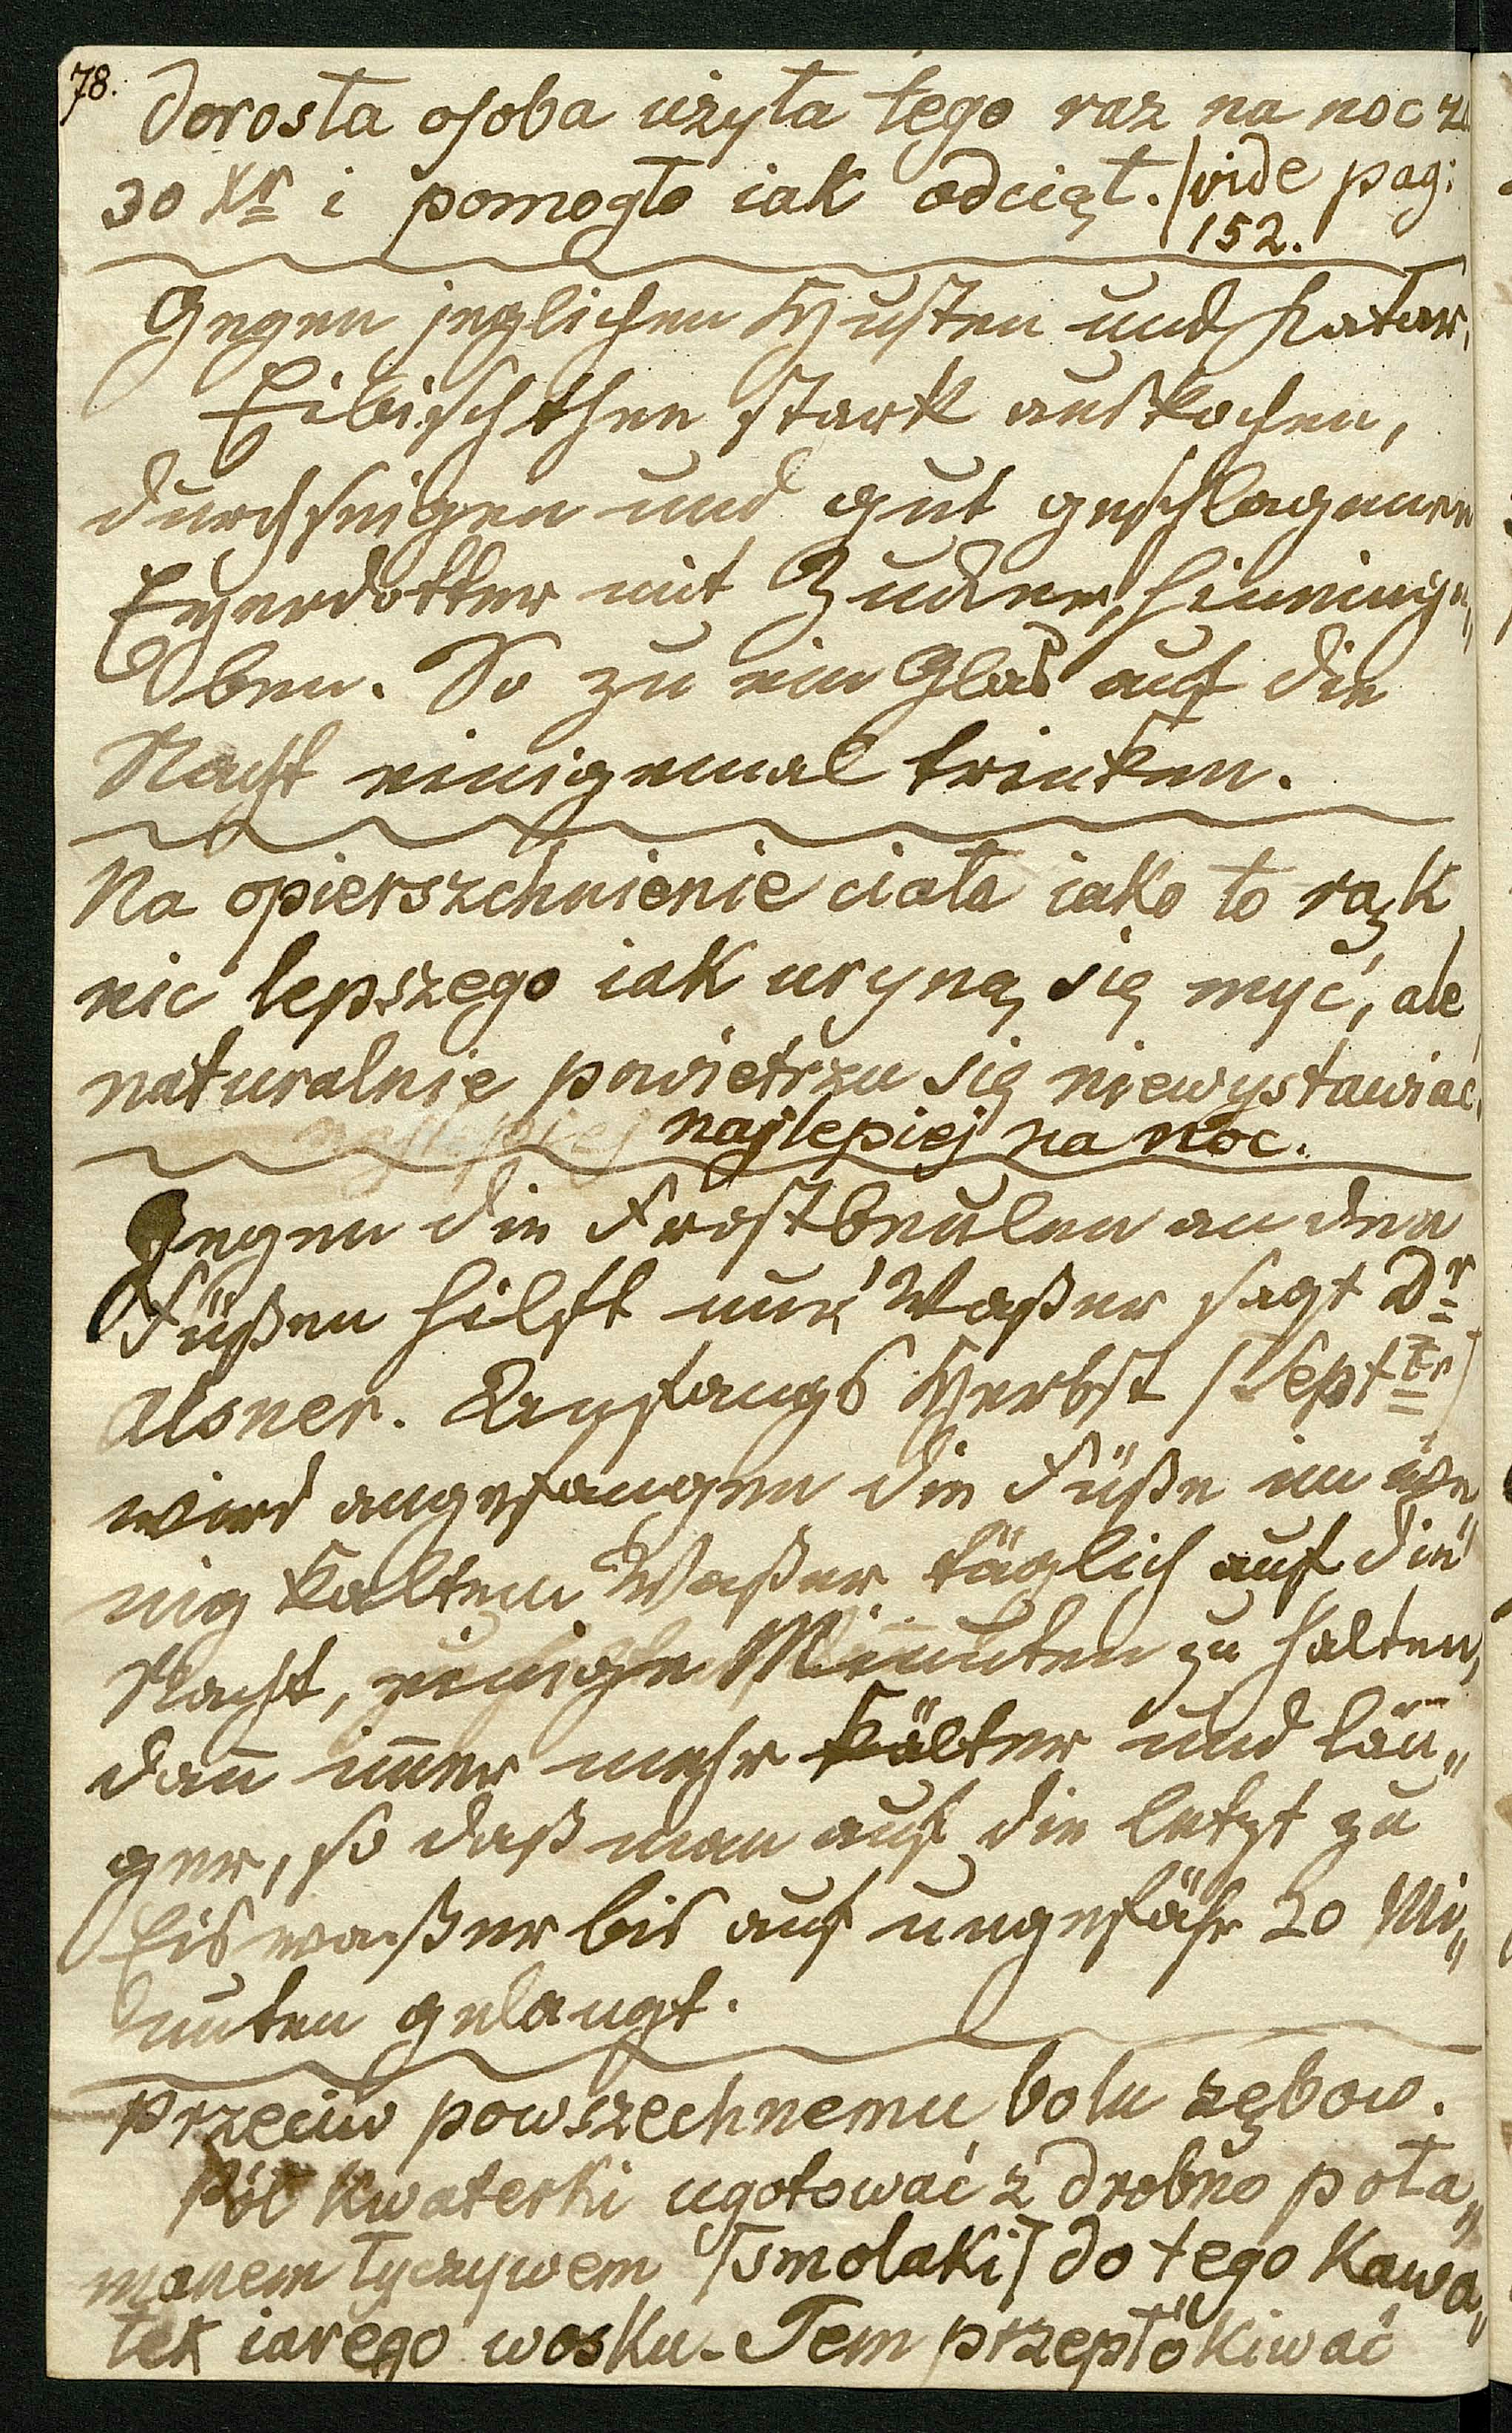 78.
Dorosła osoba użyła tego raz na noc za
30 Xr i pomogło iak odciął. /vide pag:
152.
Gegen jeglichen Husten und Katar.
Eibischthee stark auskochen,
durchseigen und gut geschlagenen
Eyerdotter mit Zucker, hineinge„
ben. So zu ein Glas auf die
Nacht einigemal trinken.
Na opierszchnienie ciała iako to rąk
nic lepszego iak uryną się myć, ale
naturalnie powietrzu się niewystawiać,
najlepiej najlepiej na noc.
Gegen die Frostbeulen an den
Füßen hilft nur Waßer sagt Dr
Alsner. Anfangs Herbst /Septbr/
wird angefangen die Füße in we„
nig kaltem Waßer täglich auf die
Nacht, einige Minuten zu halten,
dañ im̄er mehr kälter und län„
ger, so daß man auf die letzt zu
Eiswaßer bis auf ungefähr 20 Mi„
nuten gelangt.
Przeciw powszechnemu bolu zębow.
Pół kwaterki ugotować z drobno poła„
manem łyczywem /smolaki/ do tego kawa„
łek iarego wosku. Tem przepłókiwać